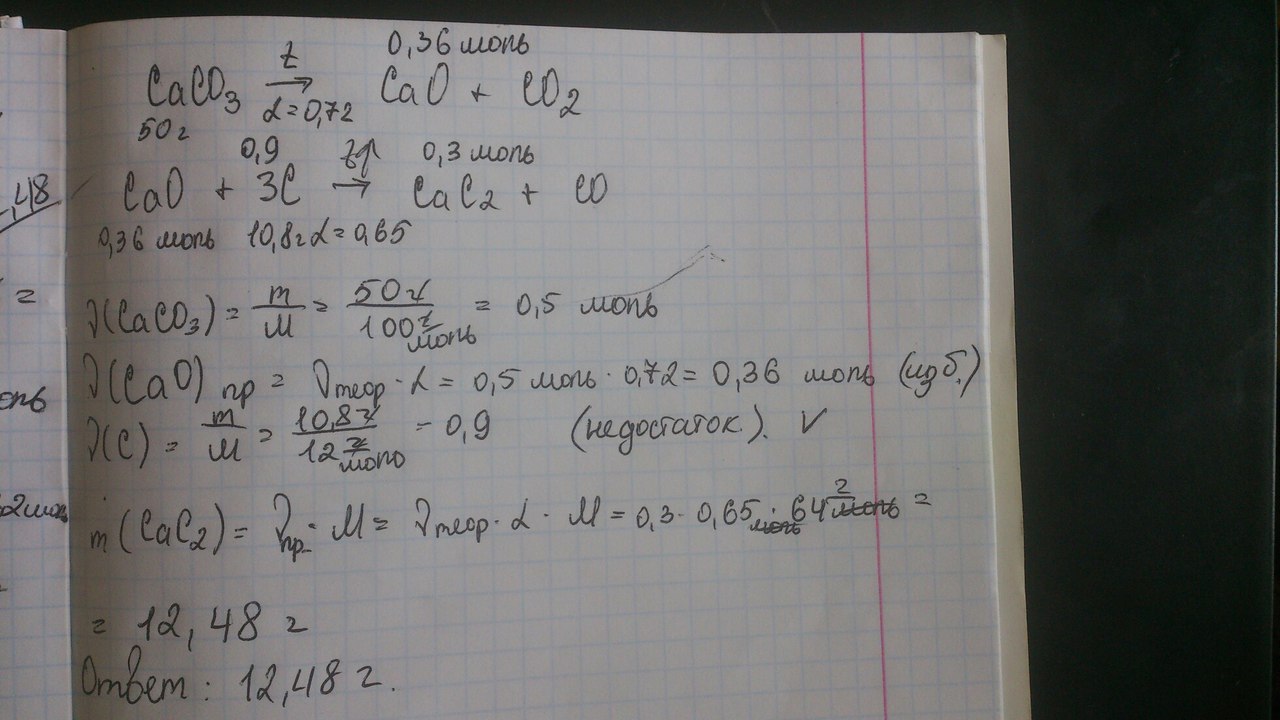 0,36 моль
CaCO3 t→ CaO + CO2
50 г α=0,72
0,9 t↑ 0,3 моль
CaO + 3C → CaC2 + CO
,48
0,36 моль 10,8г α=0,65
=
ν(CaCO3) = m/M = 50г/100г/моль = 0,5 моль
ν(CaO)пр = νтеор · α = 0,5 моль · 0,72 = 0,36 моль (изб.)
ν(C) = m/M = 10,8г/12г/моль = 0,9 (недостаток). V
m(CaC2) = νпр · M = νтеор · α · M = 0,3 · 0,65 моль · 64 г/моль =
= 12,48 г
Ответ: 12,48 г.